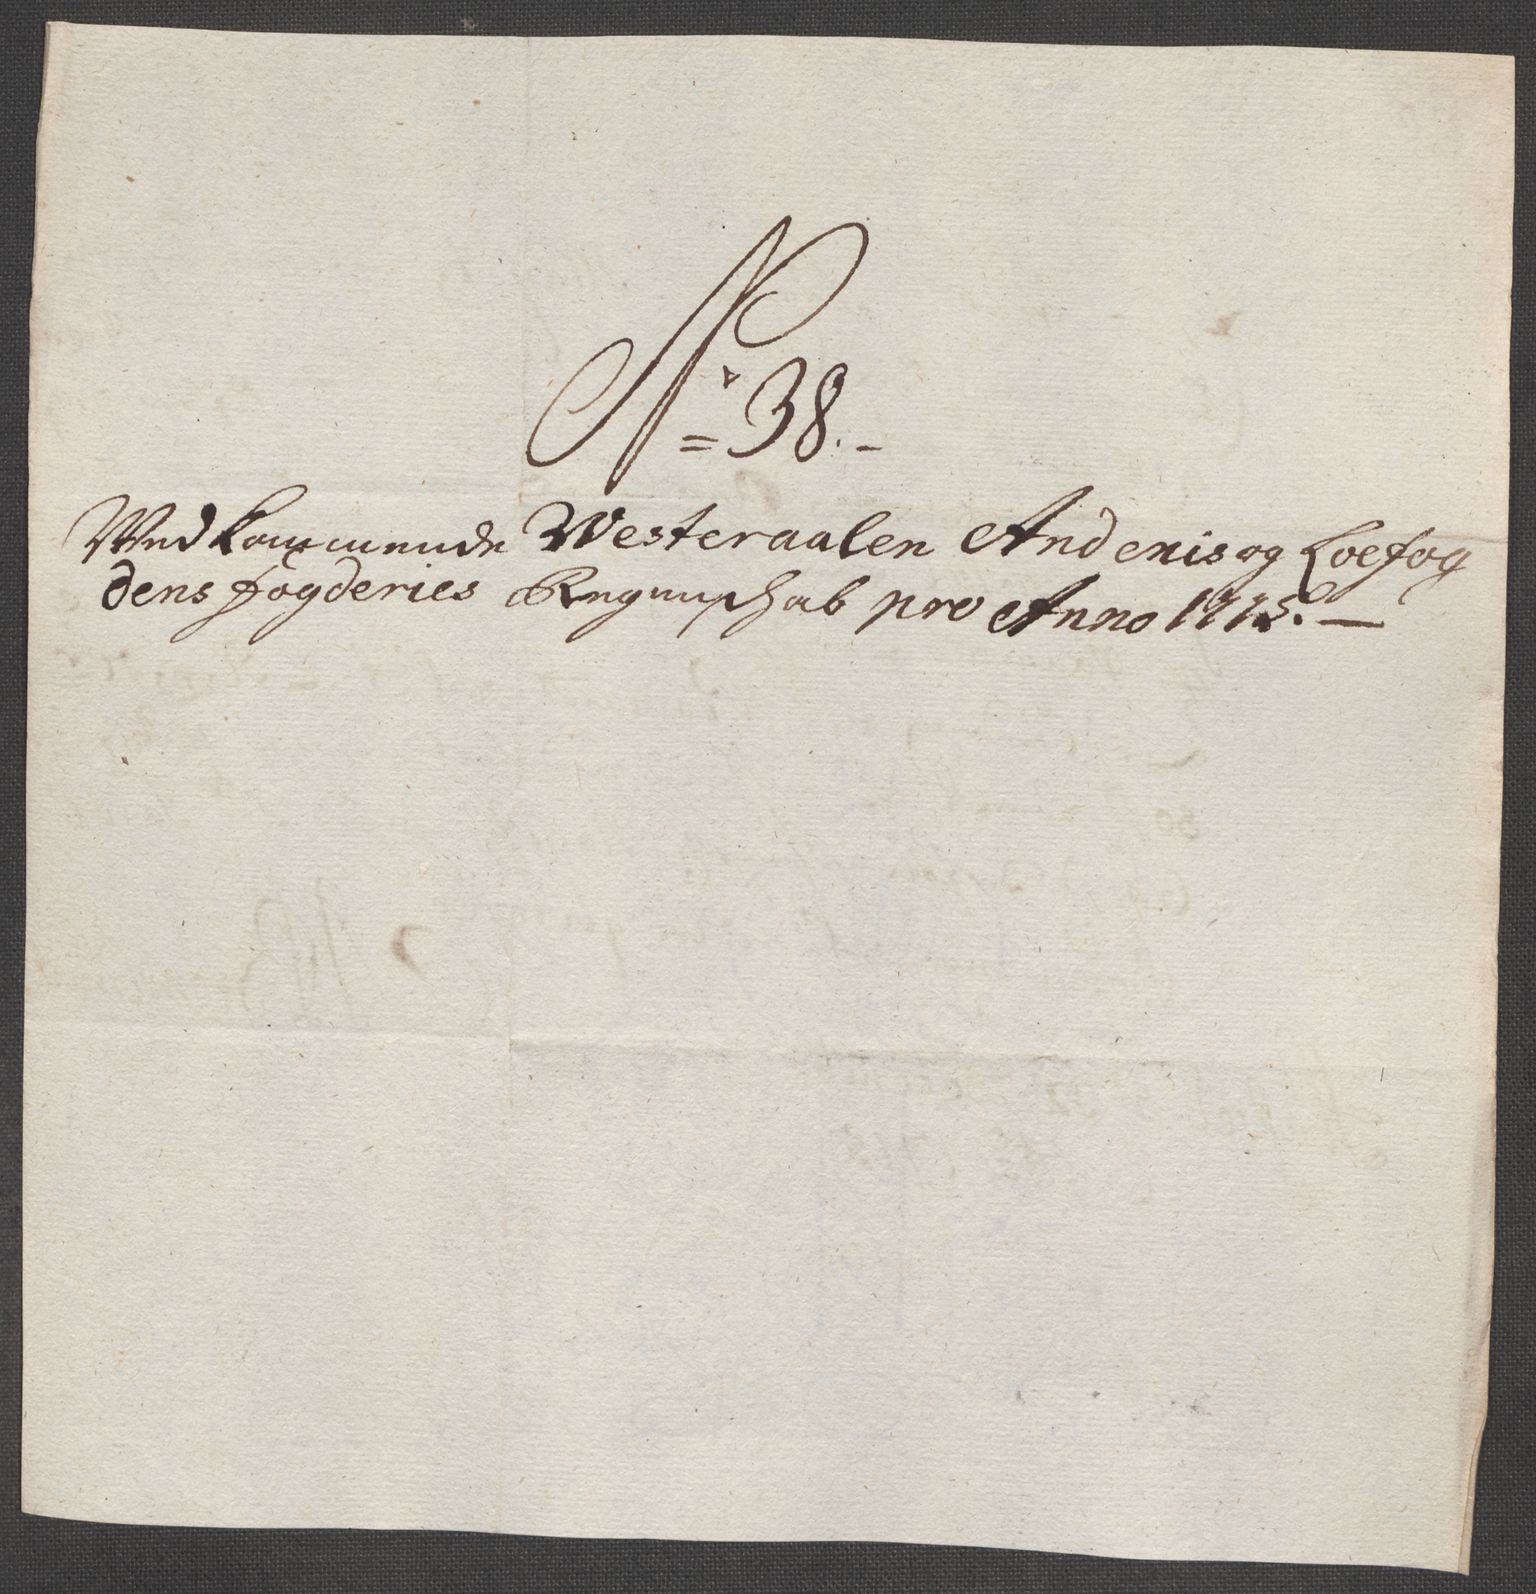 No 38.-
Wedkommende Westeraalen Andenis og Loefog
dens fogderies Regnschab pro Anno 1715.—